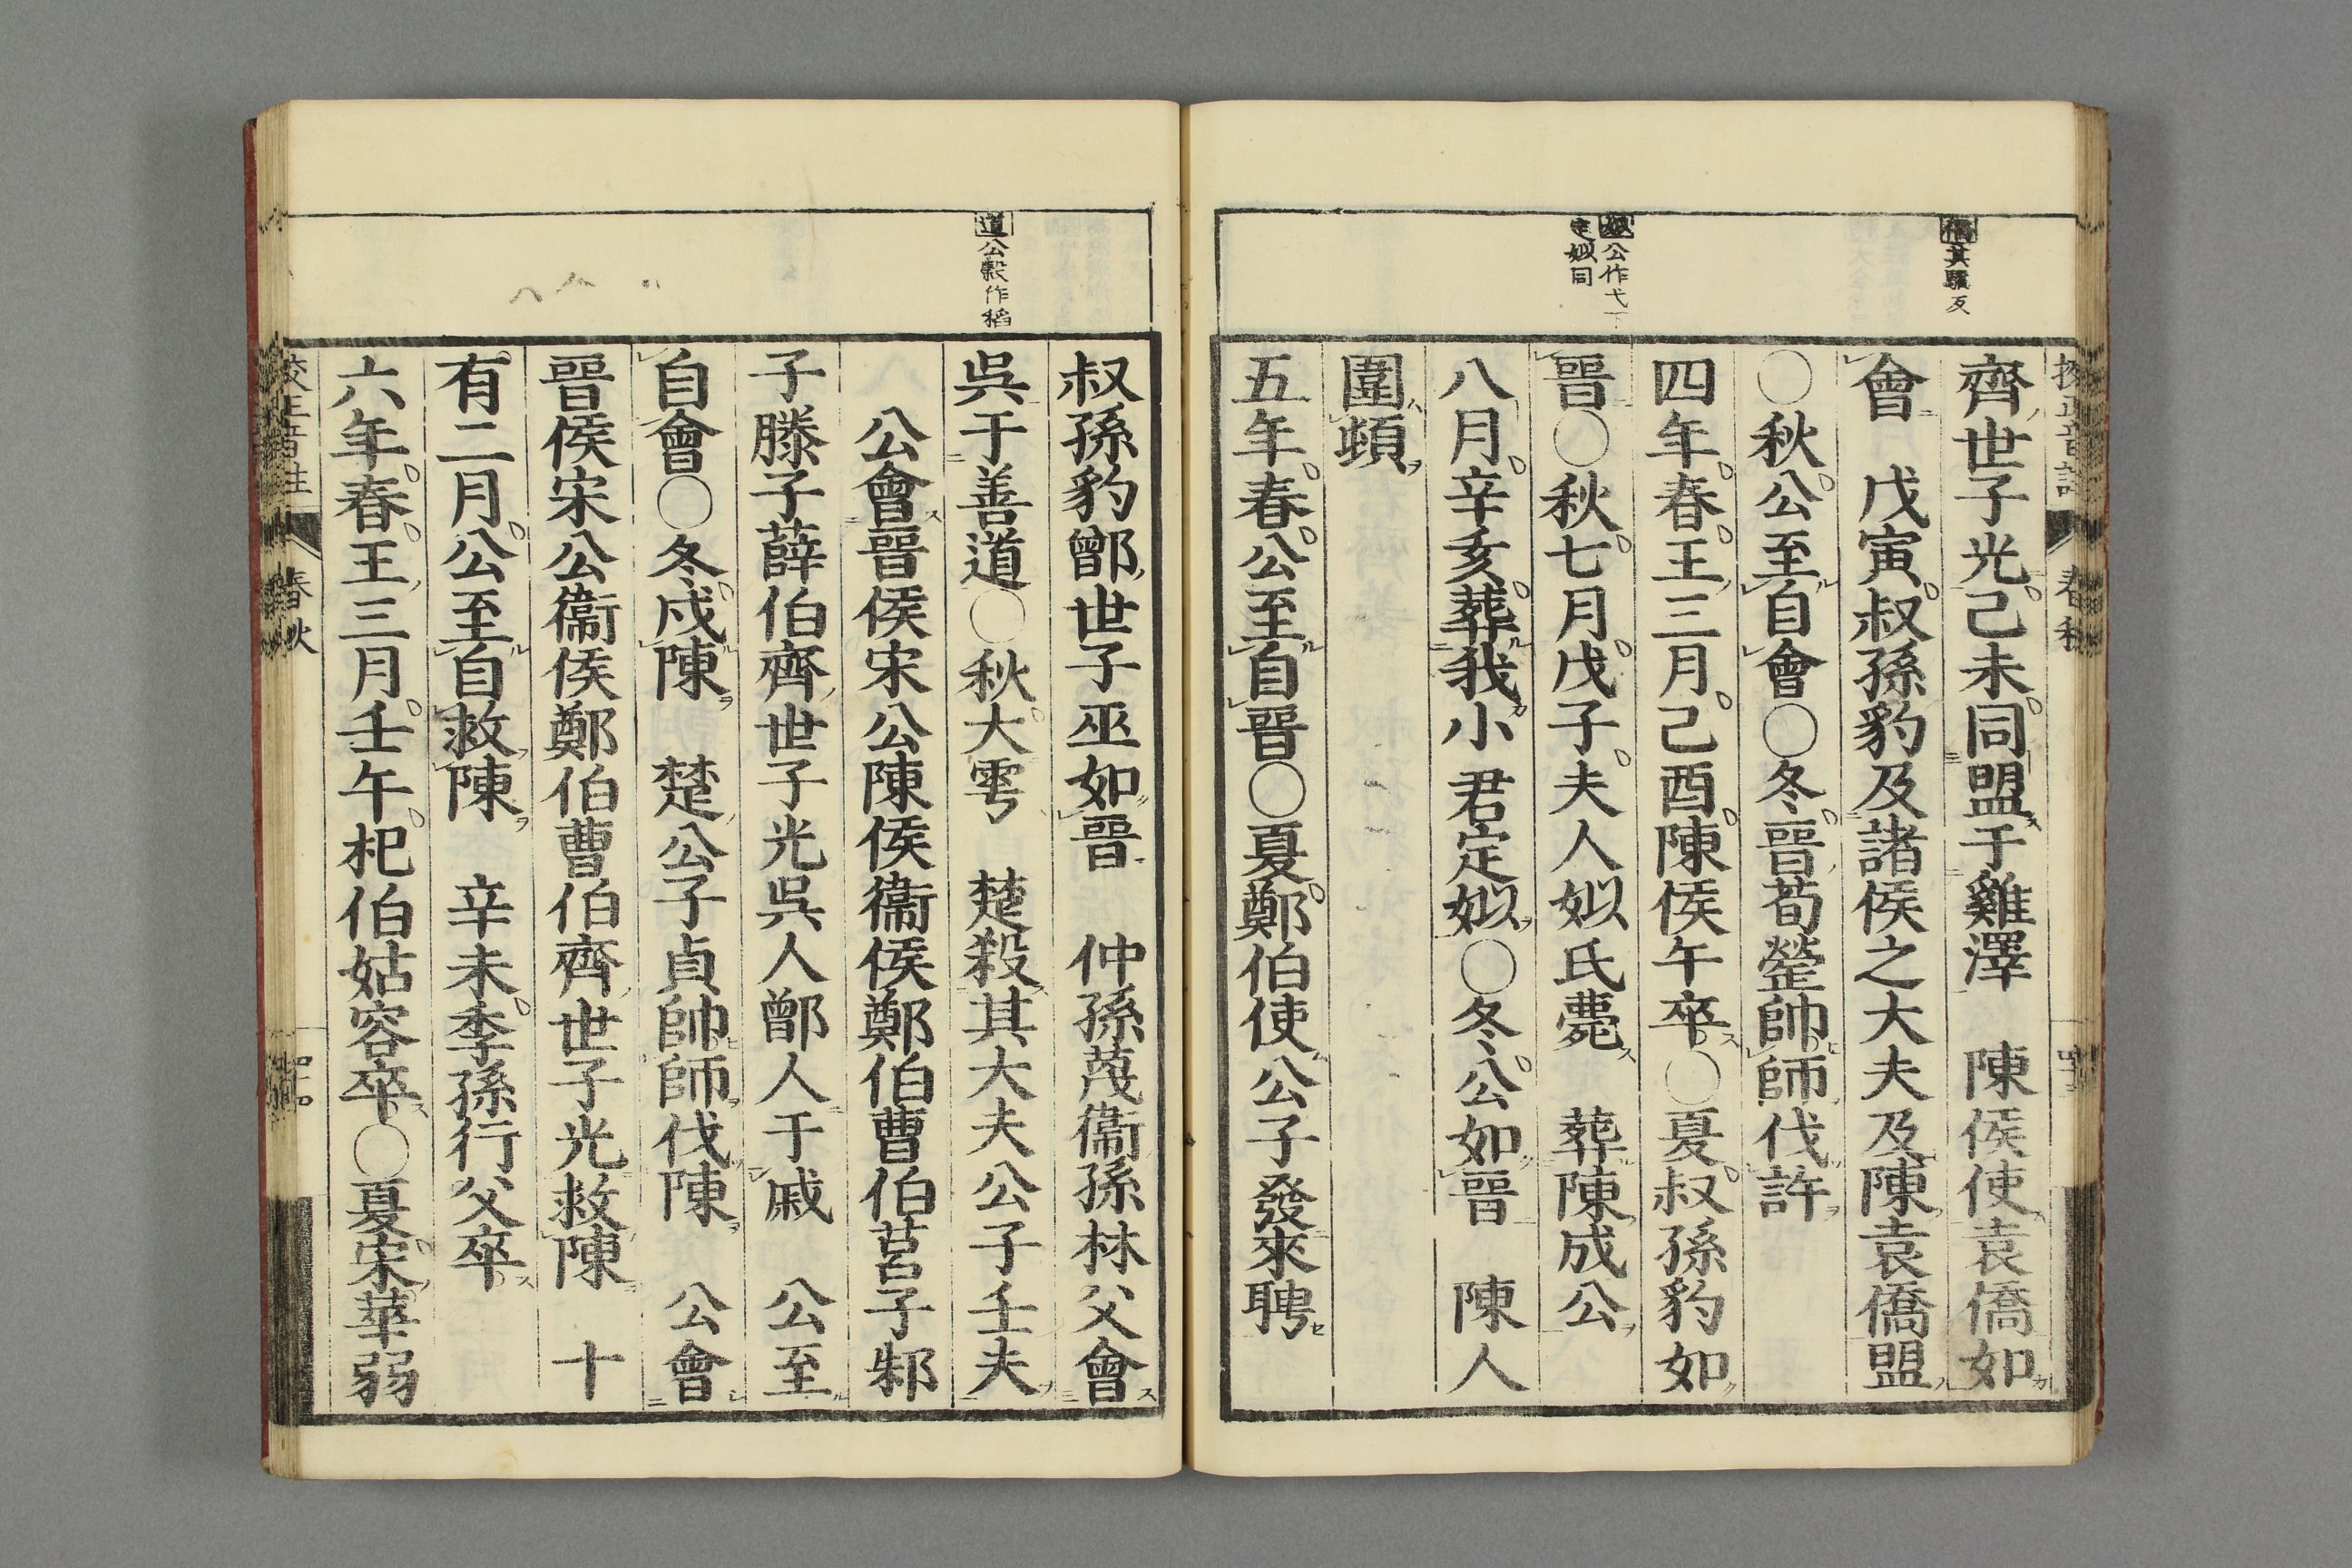 僑其驕反
姒公作弋下
定姒同
齊世子光己未同盟于雞澤　陳侯使袁僑如
會　戊寅叔孫豹及諸侯之大夫及陳袁僑盟
○秋公至自會○冬晉荀罃帥師伐許
四年春王三月己酉陳侯午卒○夏叔孫豹如
晉○秋七月戊子夫人姒氏薨　葬陳成公
八月辛亥葬我小君定姒○冬公如晉　陳人
圍頓
五年春公至自晉○夏鄭伯使公子發來聘
道公穀作稻
叔孫豹鄫世子巫如晉　仲孫蔑衞孫林父會
吳于善道○秋大雩　楚殺其大夫公子壬夫
公會晉侯宋公陳侯衞侯鄭伯曹伯莒子邾
子滕子薛伯齊世子光吳人鄫人于戚　公至
自會○冬戍陳　楚公子貞帥師伐陳　公會
晉侯宋公衞侯鄭伯曹伯齊世子光救陳　十
有二月公至自救陳　辛未季孫行父卒
六年春王三月壬午杞伯姑容卒○夏宋華弱
校正音註　春秋